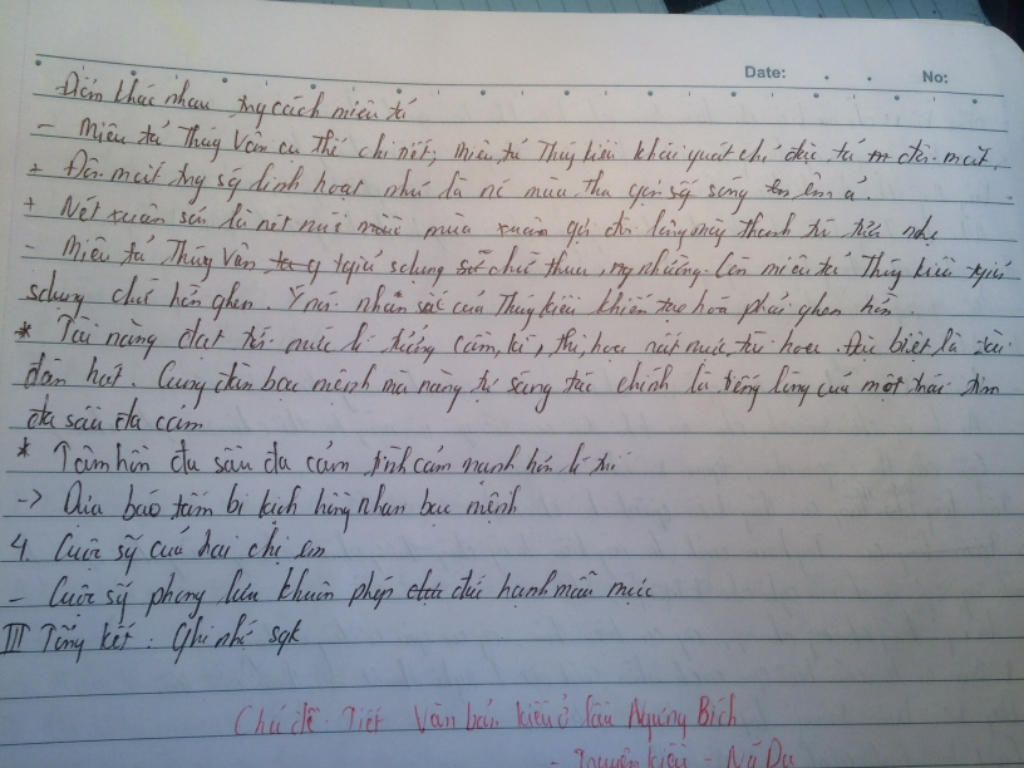 Date: No:
Điểm khác nhau tng cách miêu tả
- Miêu tả Thúy Vân cụ thể chi tiết, miêu tả Thúy Kiều khái quát chỉ đặc tả đôi mắt
+ Đôi mắt tng sg linh hoạt như là nc mùa thu gợn sg sóng êm ả.
+ Nét xuân sơn là nét núi mùa xuân gợi đôi lông mày thanh tú nhẹ
- Miêu tả Thúy Vân tgiả sdụng chữ thua, nhường. Còn miêu tả Thúy Kiều tgiả
sdụng chữ hờn ghen. Ý nói nhan sắc của Thúy Kiều khiến tạo hoá phải ghen hờn.
* Tài năng đạt tới mức lí tưởng cầm, kì, thi, hoạ Đặc biệt là tài
đàn hát. Cung đàn bạc mệnh mà nàng tự sáng tác chính là tiếng lòng của một trái tim
đa sầu đa cảm
* Tâm hồn đa sầu đa cảm tình cảm mạnh hơn lí trí
-> Dựa báo tấm bi kịch hồng nhan bạc mệnh
4. Cuộc sg của hai chị em
- Cuộc sg phong lưu khuôn phép đức hạnh mẫu mực
III Tổng kết: Ghi nhớ sgk
Chủ đề. Tiết Văn bản kiều ở lầu Ngưng Bích
- Truyện Kiều - Ng Du